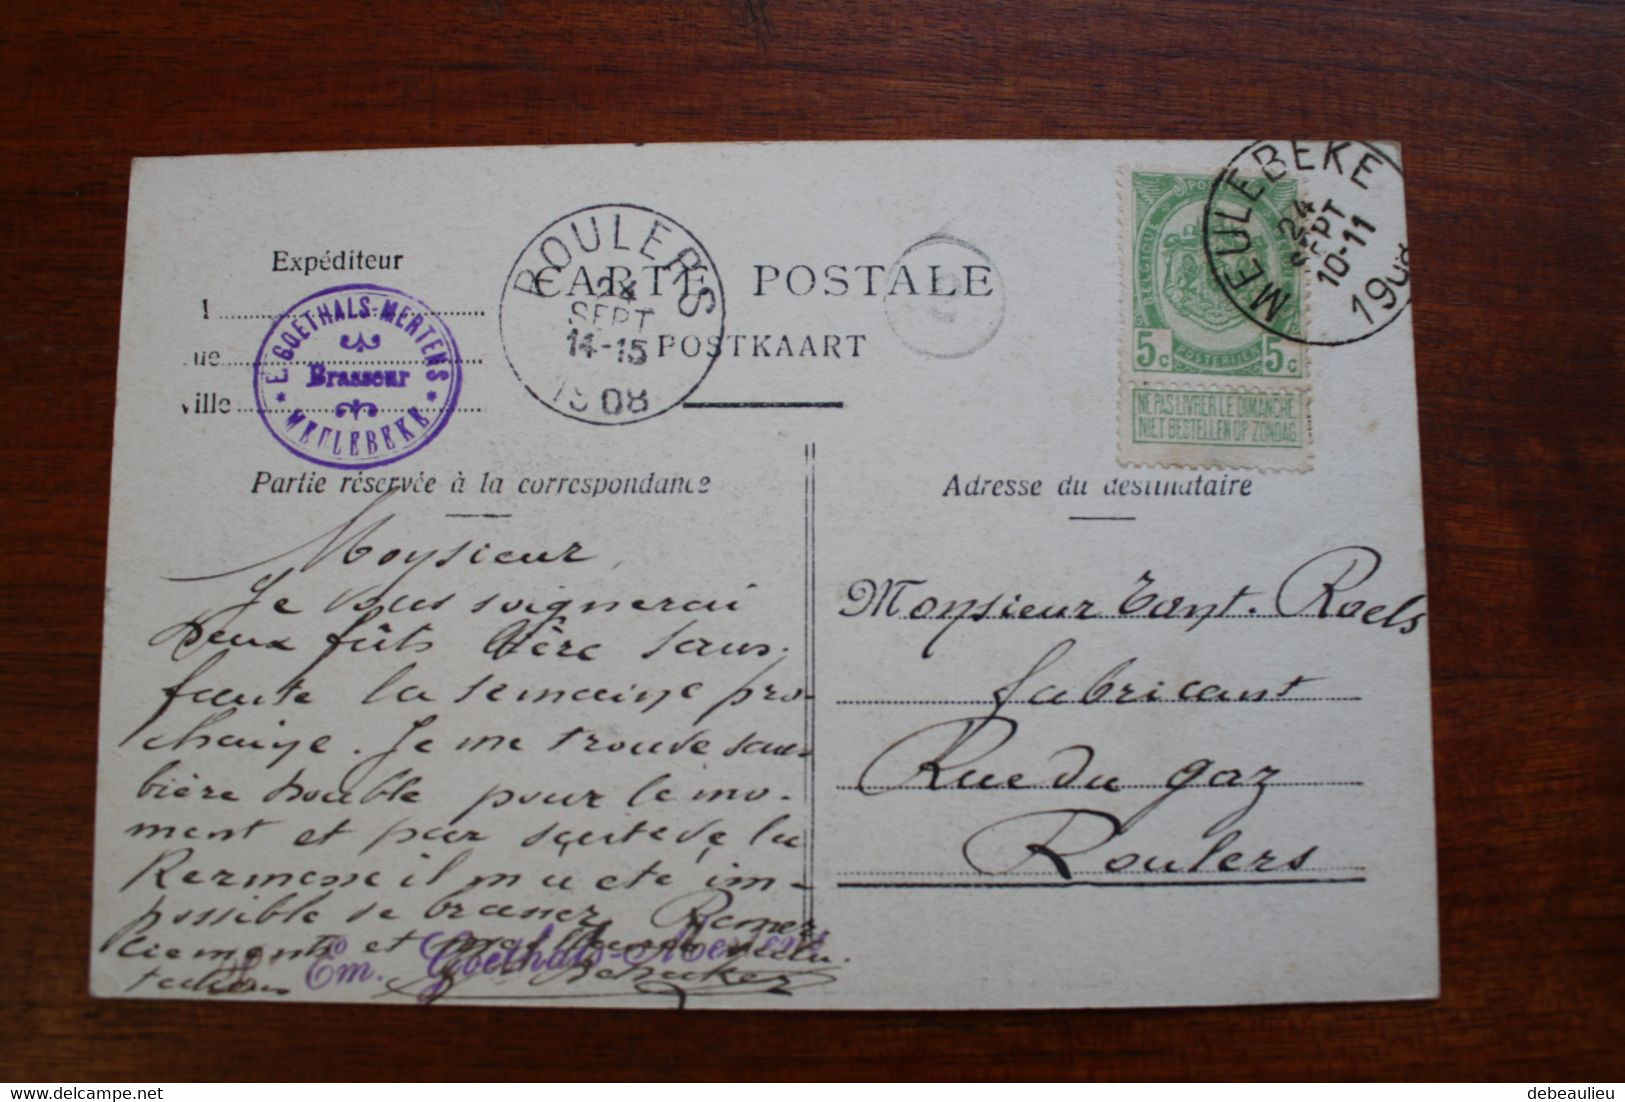 Expéditeur
E. GOETHALS-MERTENS
Brasseur
* MEULEBEKE *
ville
ROULERS
24
SEPT
14-15
1908
CARTE POSTALE
POSTKAART
BELGIQUE
5c POSTERIJEN 5c
NE PAS LIVRER LE DIMANCHE
NIET BESTELLEN OP ZONDAG
MEULEBEKE
24
SEPT
10-11
1908
Partie réservée à la correspondance
Adresse du destinataire
Monsieur,
Je vous soignerai
deux fûts bière sans
faute la semaine pro-
chaine. Je me trouve sans
bière double pour le mo-
ment et par suite de la
Kermesse il m'a été im-
possible de brasser. Remer-
ciements et
salutations
Em. Goethals-Mertens
Monsieur Const. Roels
fabricant
Rue du gaz
Roulers
debeaulieu